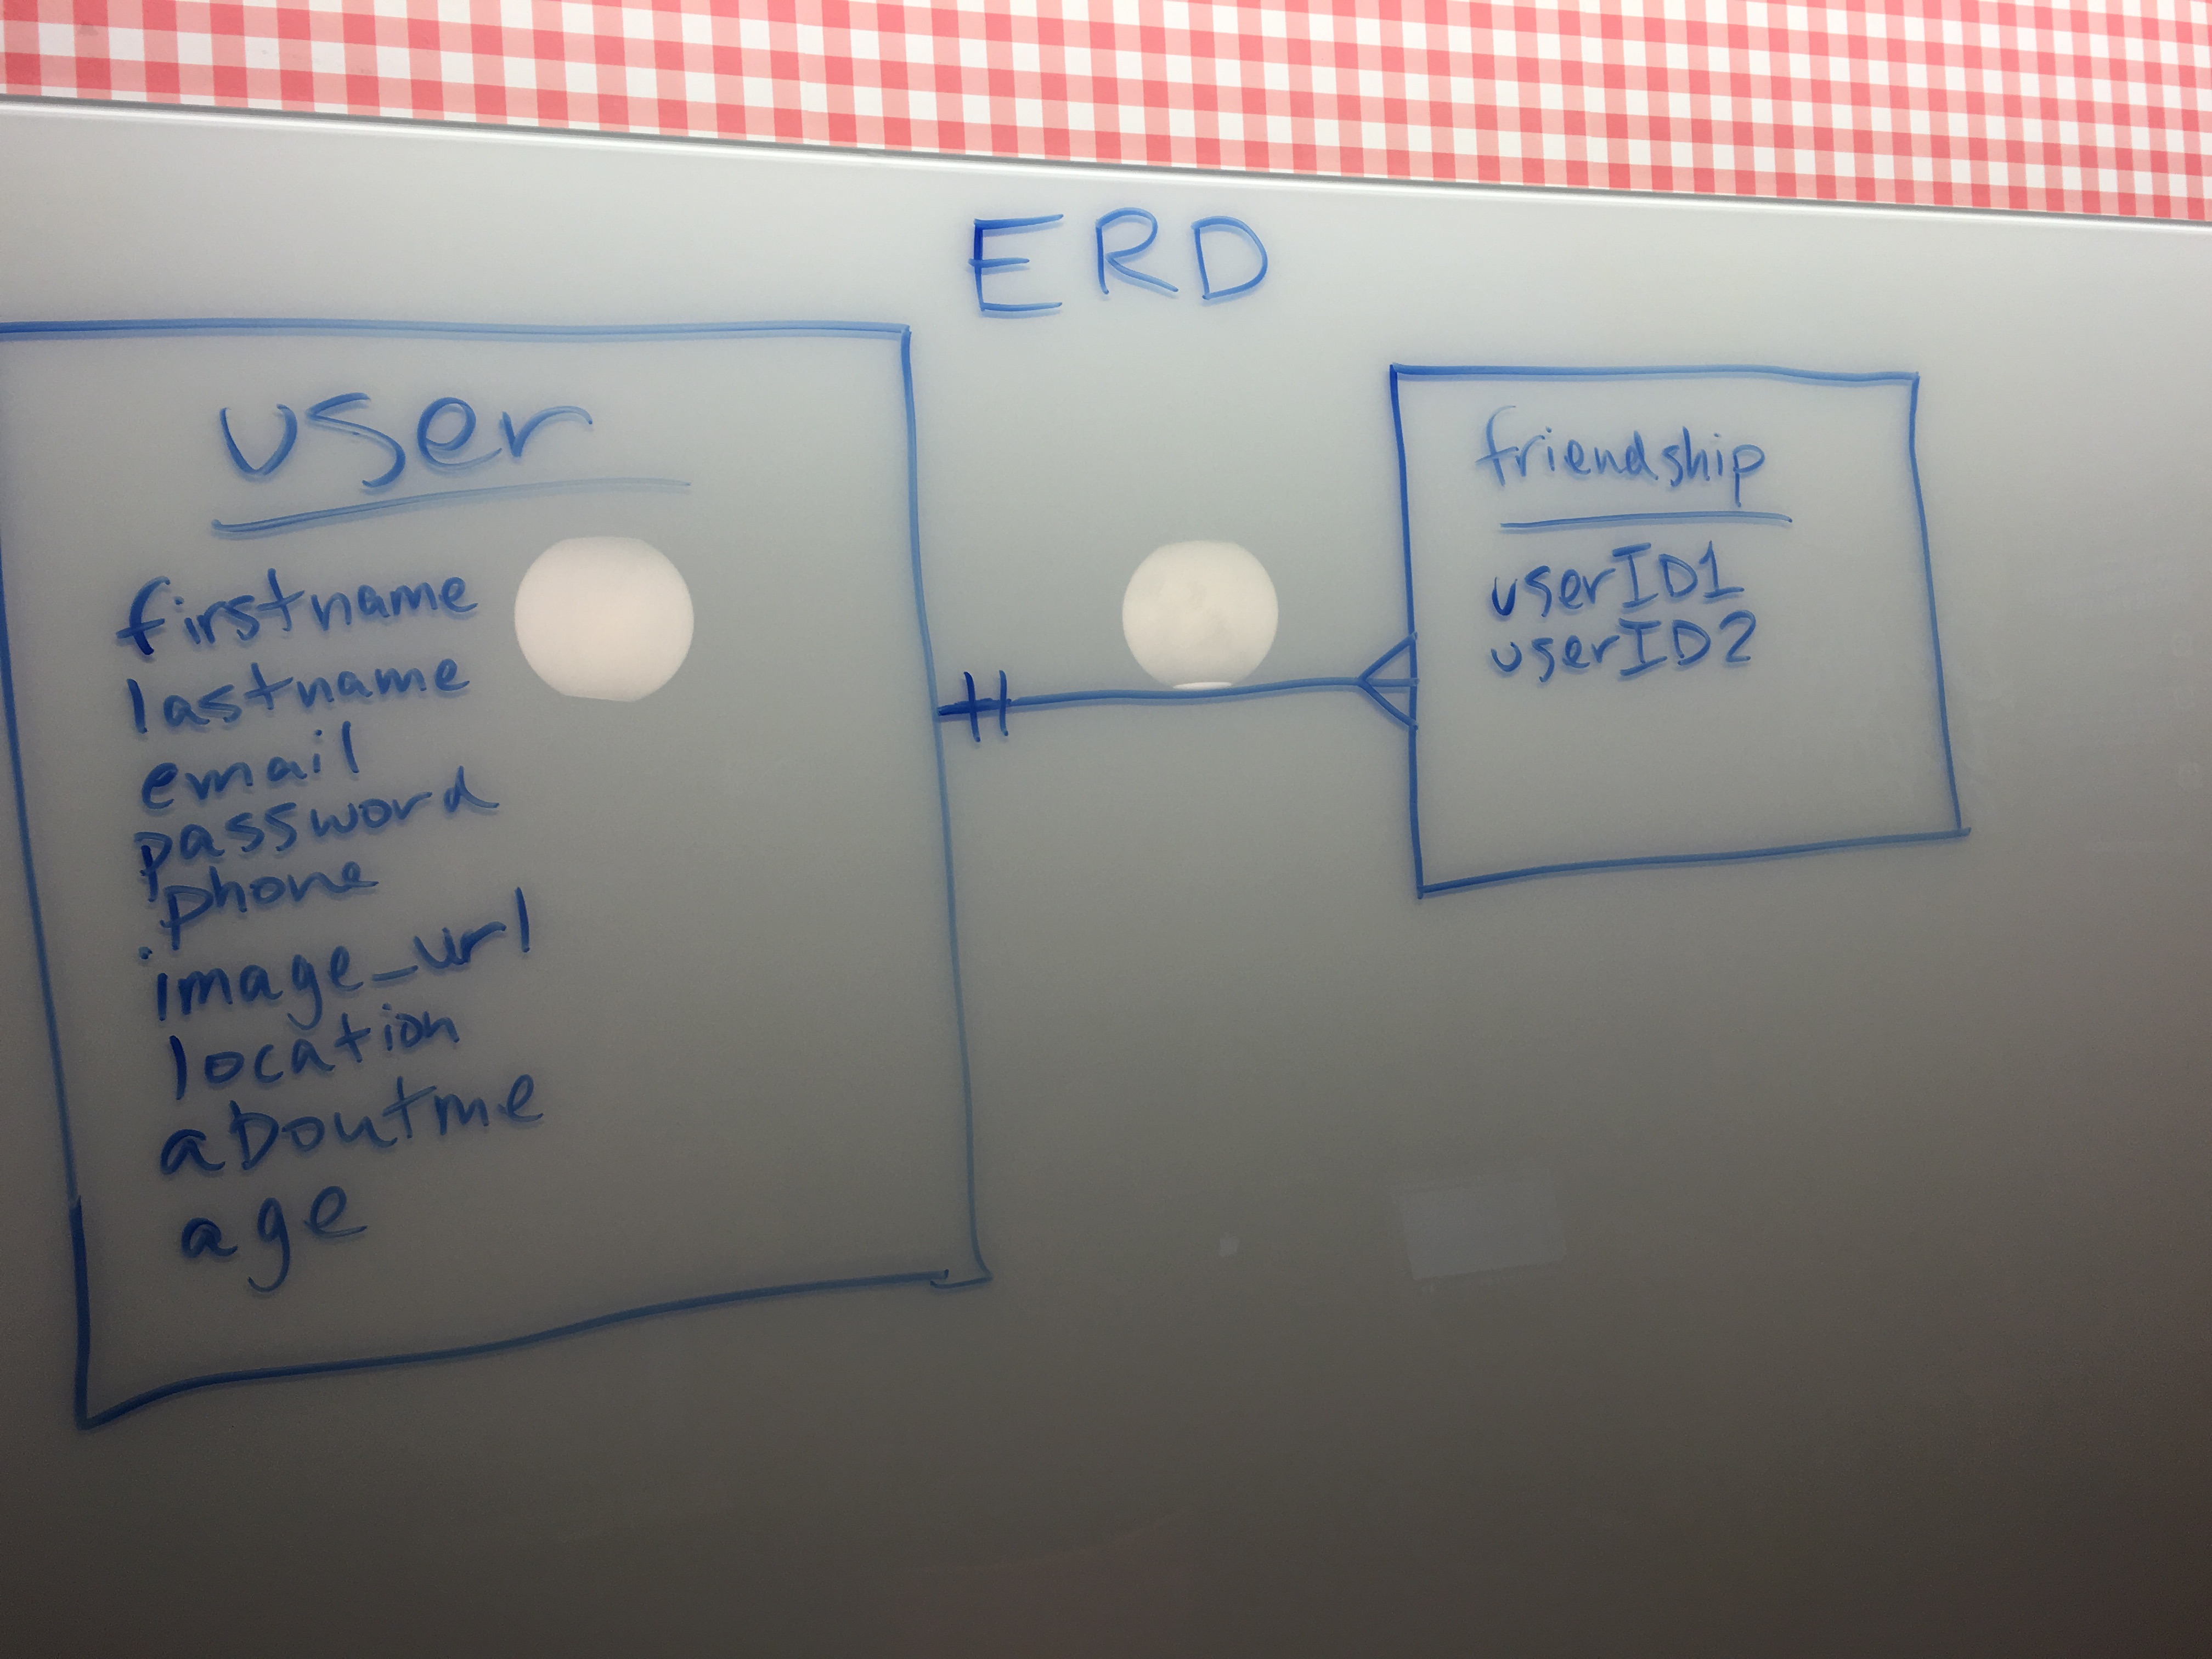 ERD
user
firstname
lastname
email
password
phone
image_url
location
aboutme
age
friendship
userID1
userID2